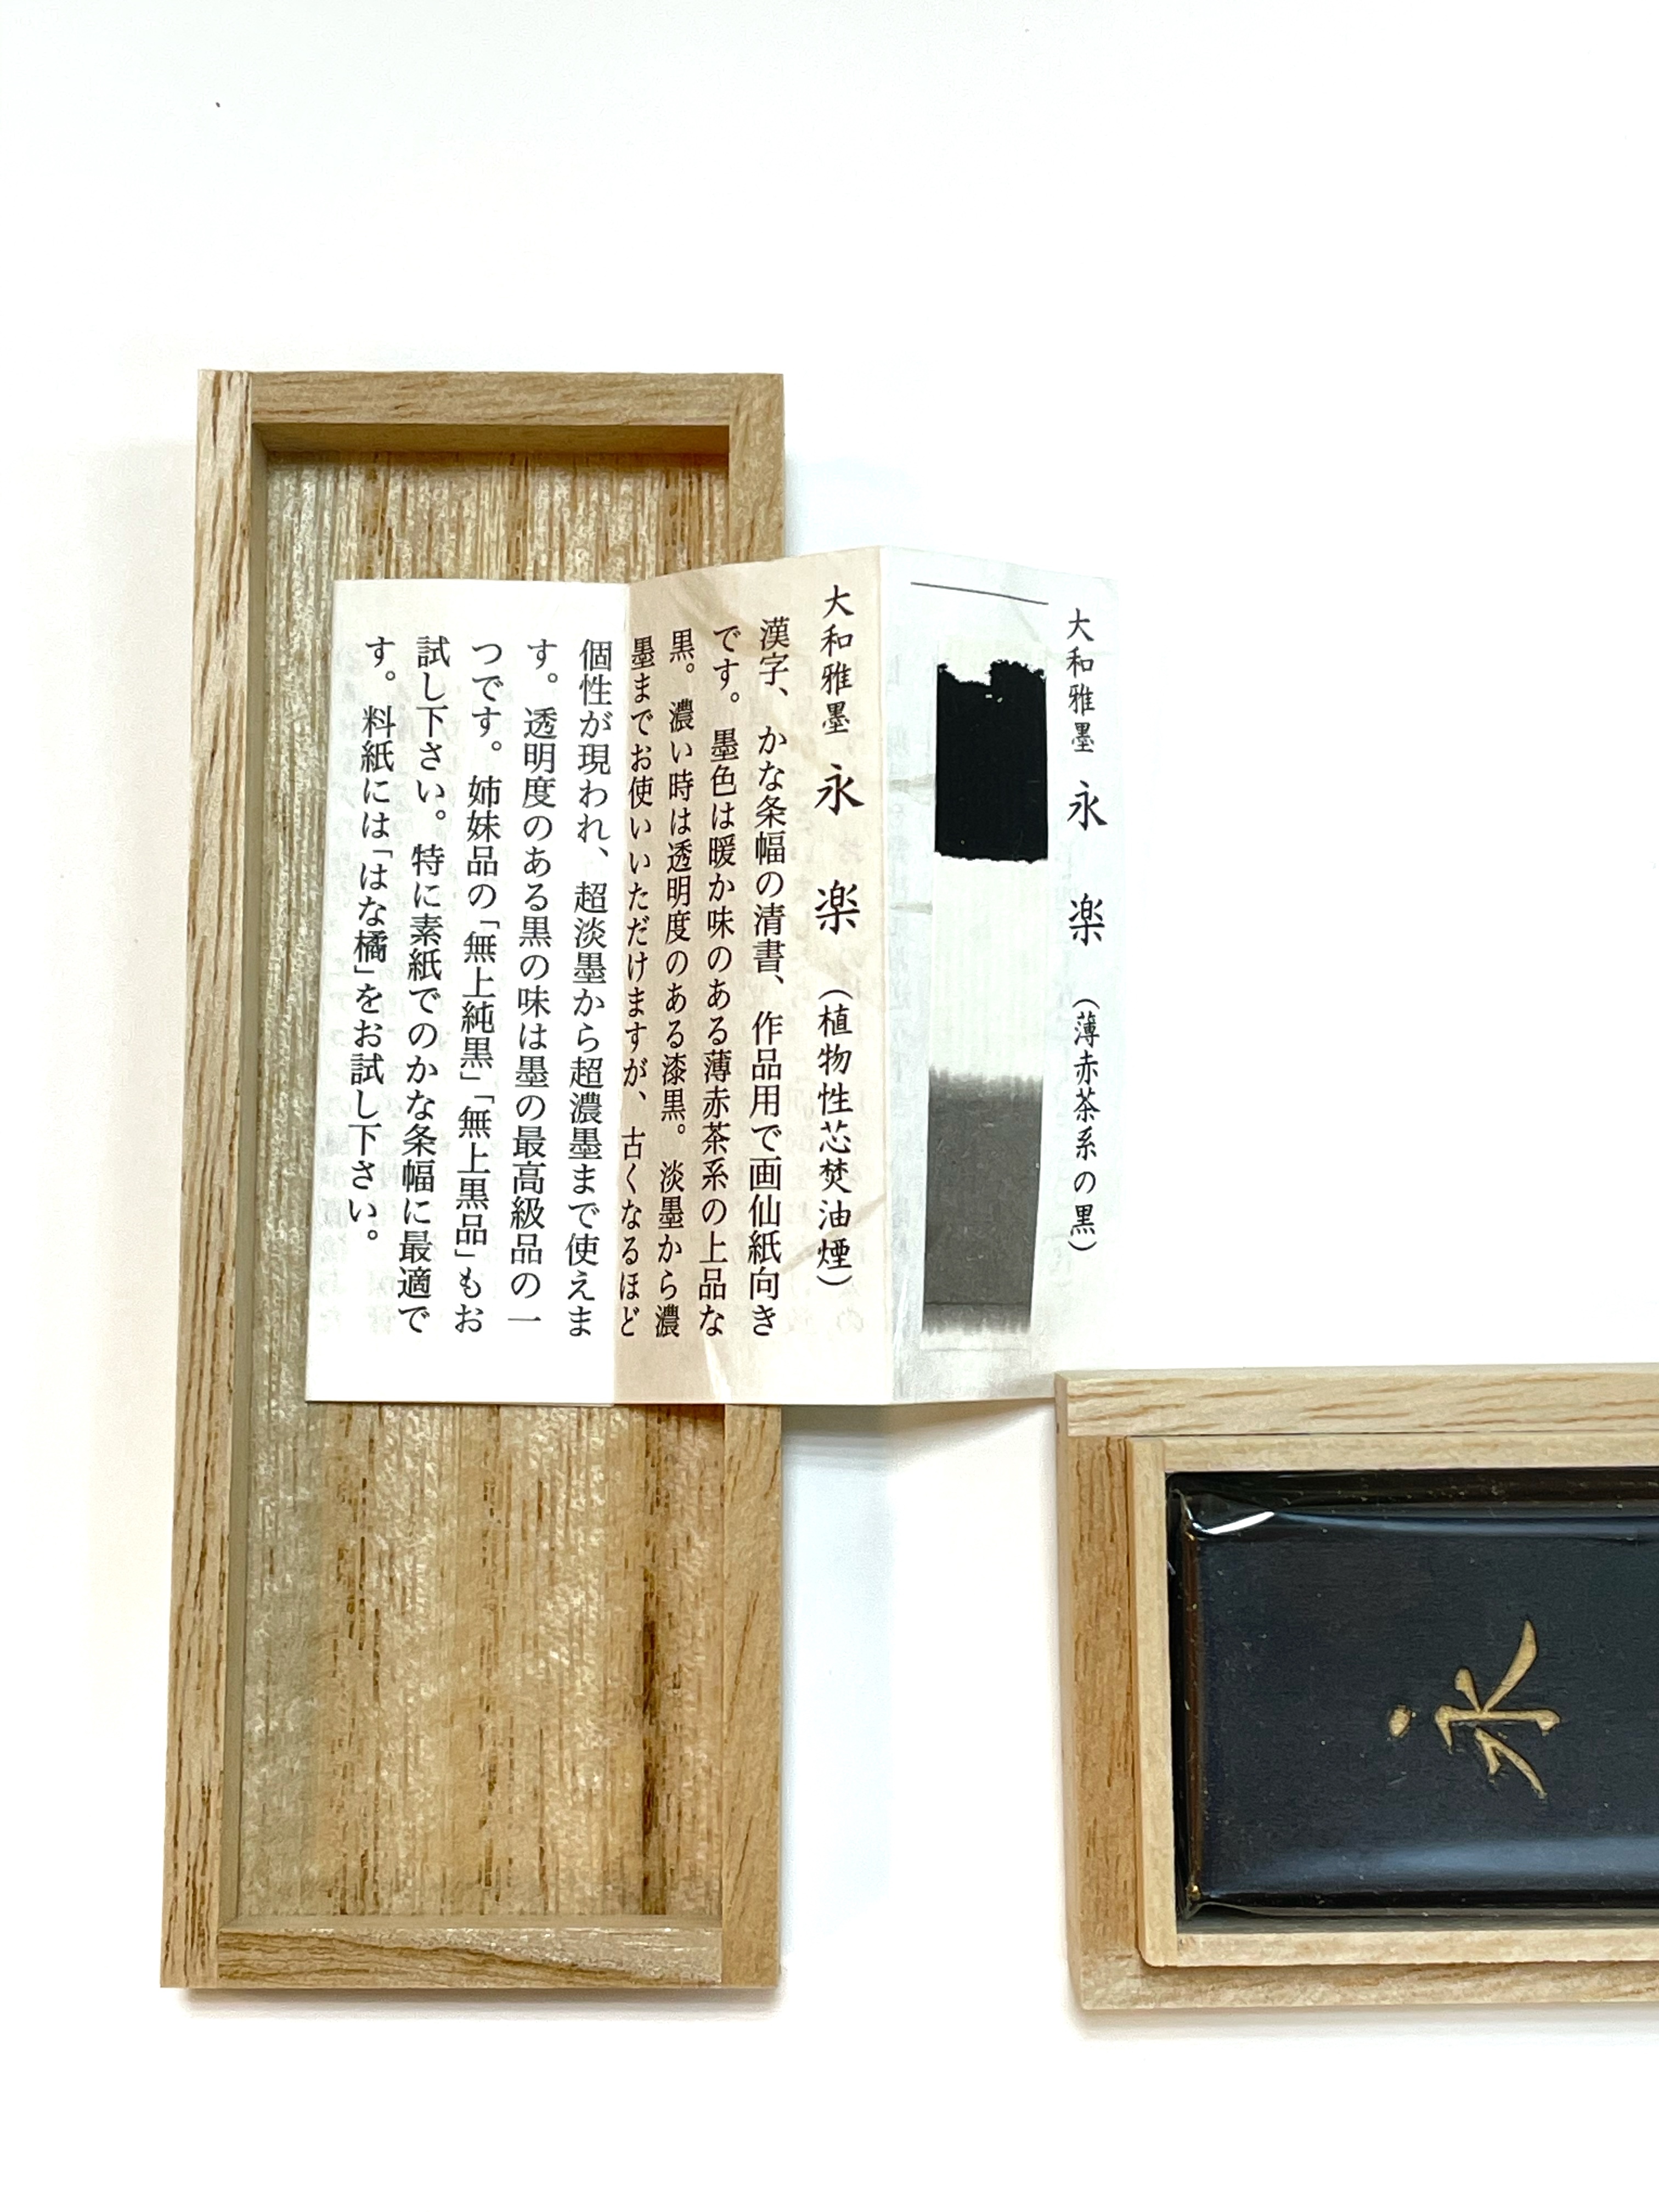 大和雅墨 永楽 (薄赤茶系の黒)
大和雅墨 永楽 (植物性芯焚油煙)
漢字、かな条幅の清書、作品用で画仙紙向き
です。墨色は暖か味のある薄赤茶系の上品な
黒。濃い時は透明度のある漆黒。淡墨から濃
墨までお使いいただけますが、古くなるほど
個性が現われ、超淡墨から超濃墨まで使えま
す。透明度のある黒の味は墨の最高級品の一
つです。姉妹品の「無上純黒」「無上黒品」もお
試し下さい。特に素紙でのかな条幅に最適で
す。料紙には「はな橘」をお試し下さい。
永